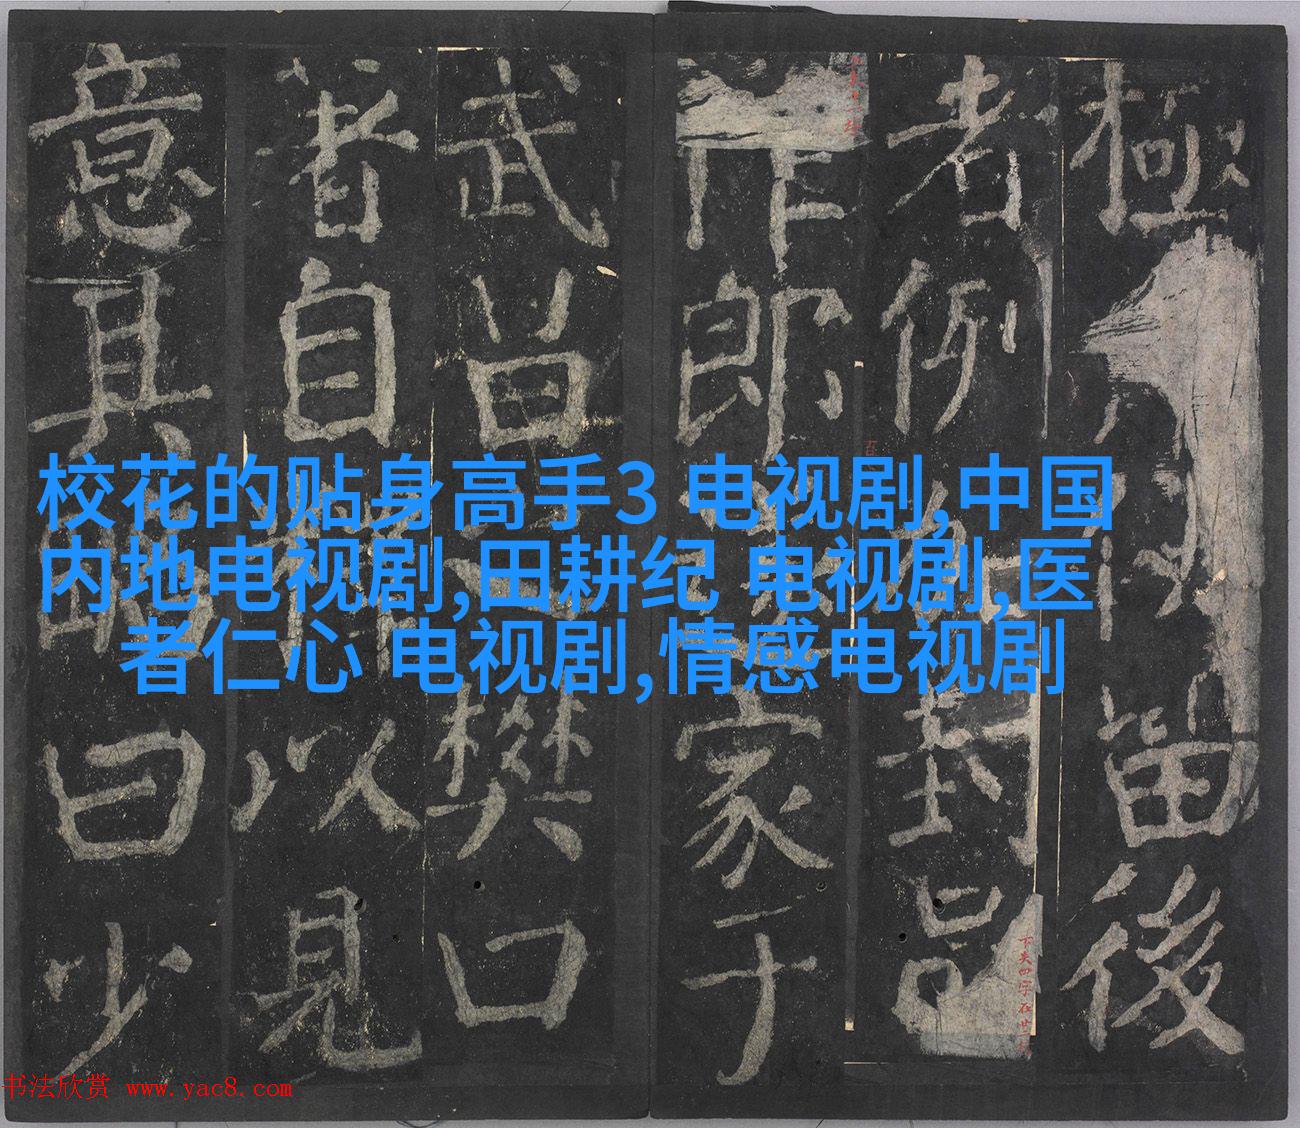 校花的贴身高手3 电视剧,中国
内地电视剧,田耕纪 电视剧,医
者仁心 电视剧,情感电视剧
極留後
者例封
作郎家于
武昌樊口
著自以見
意其曰少
书法欣赏 www.yac8.com